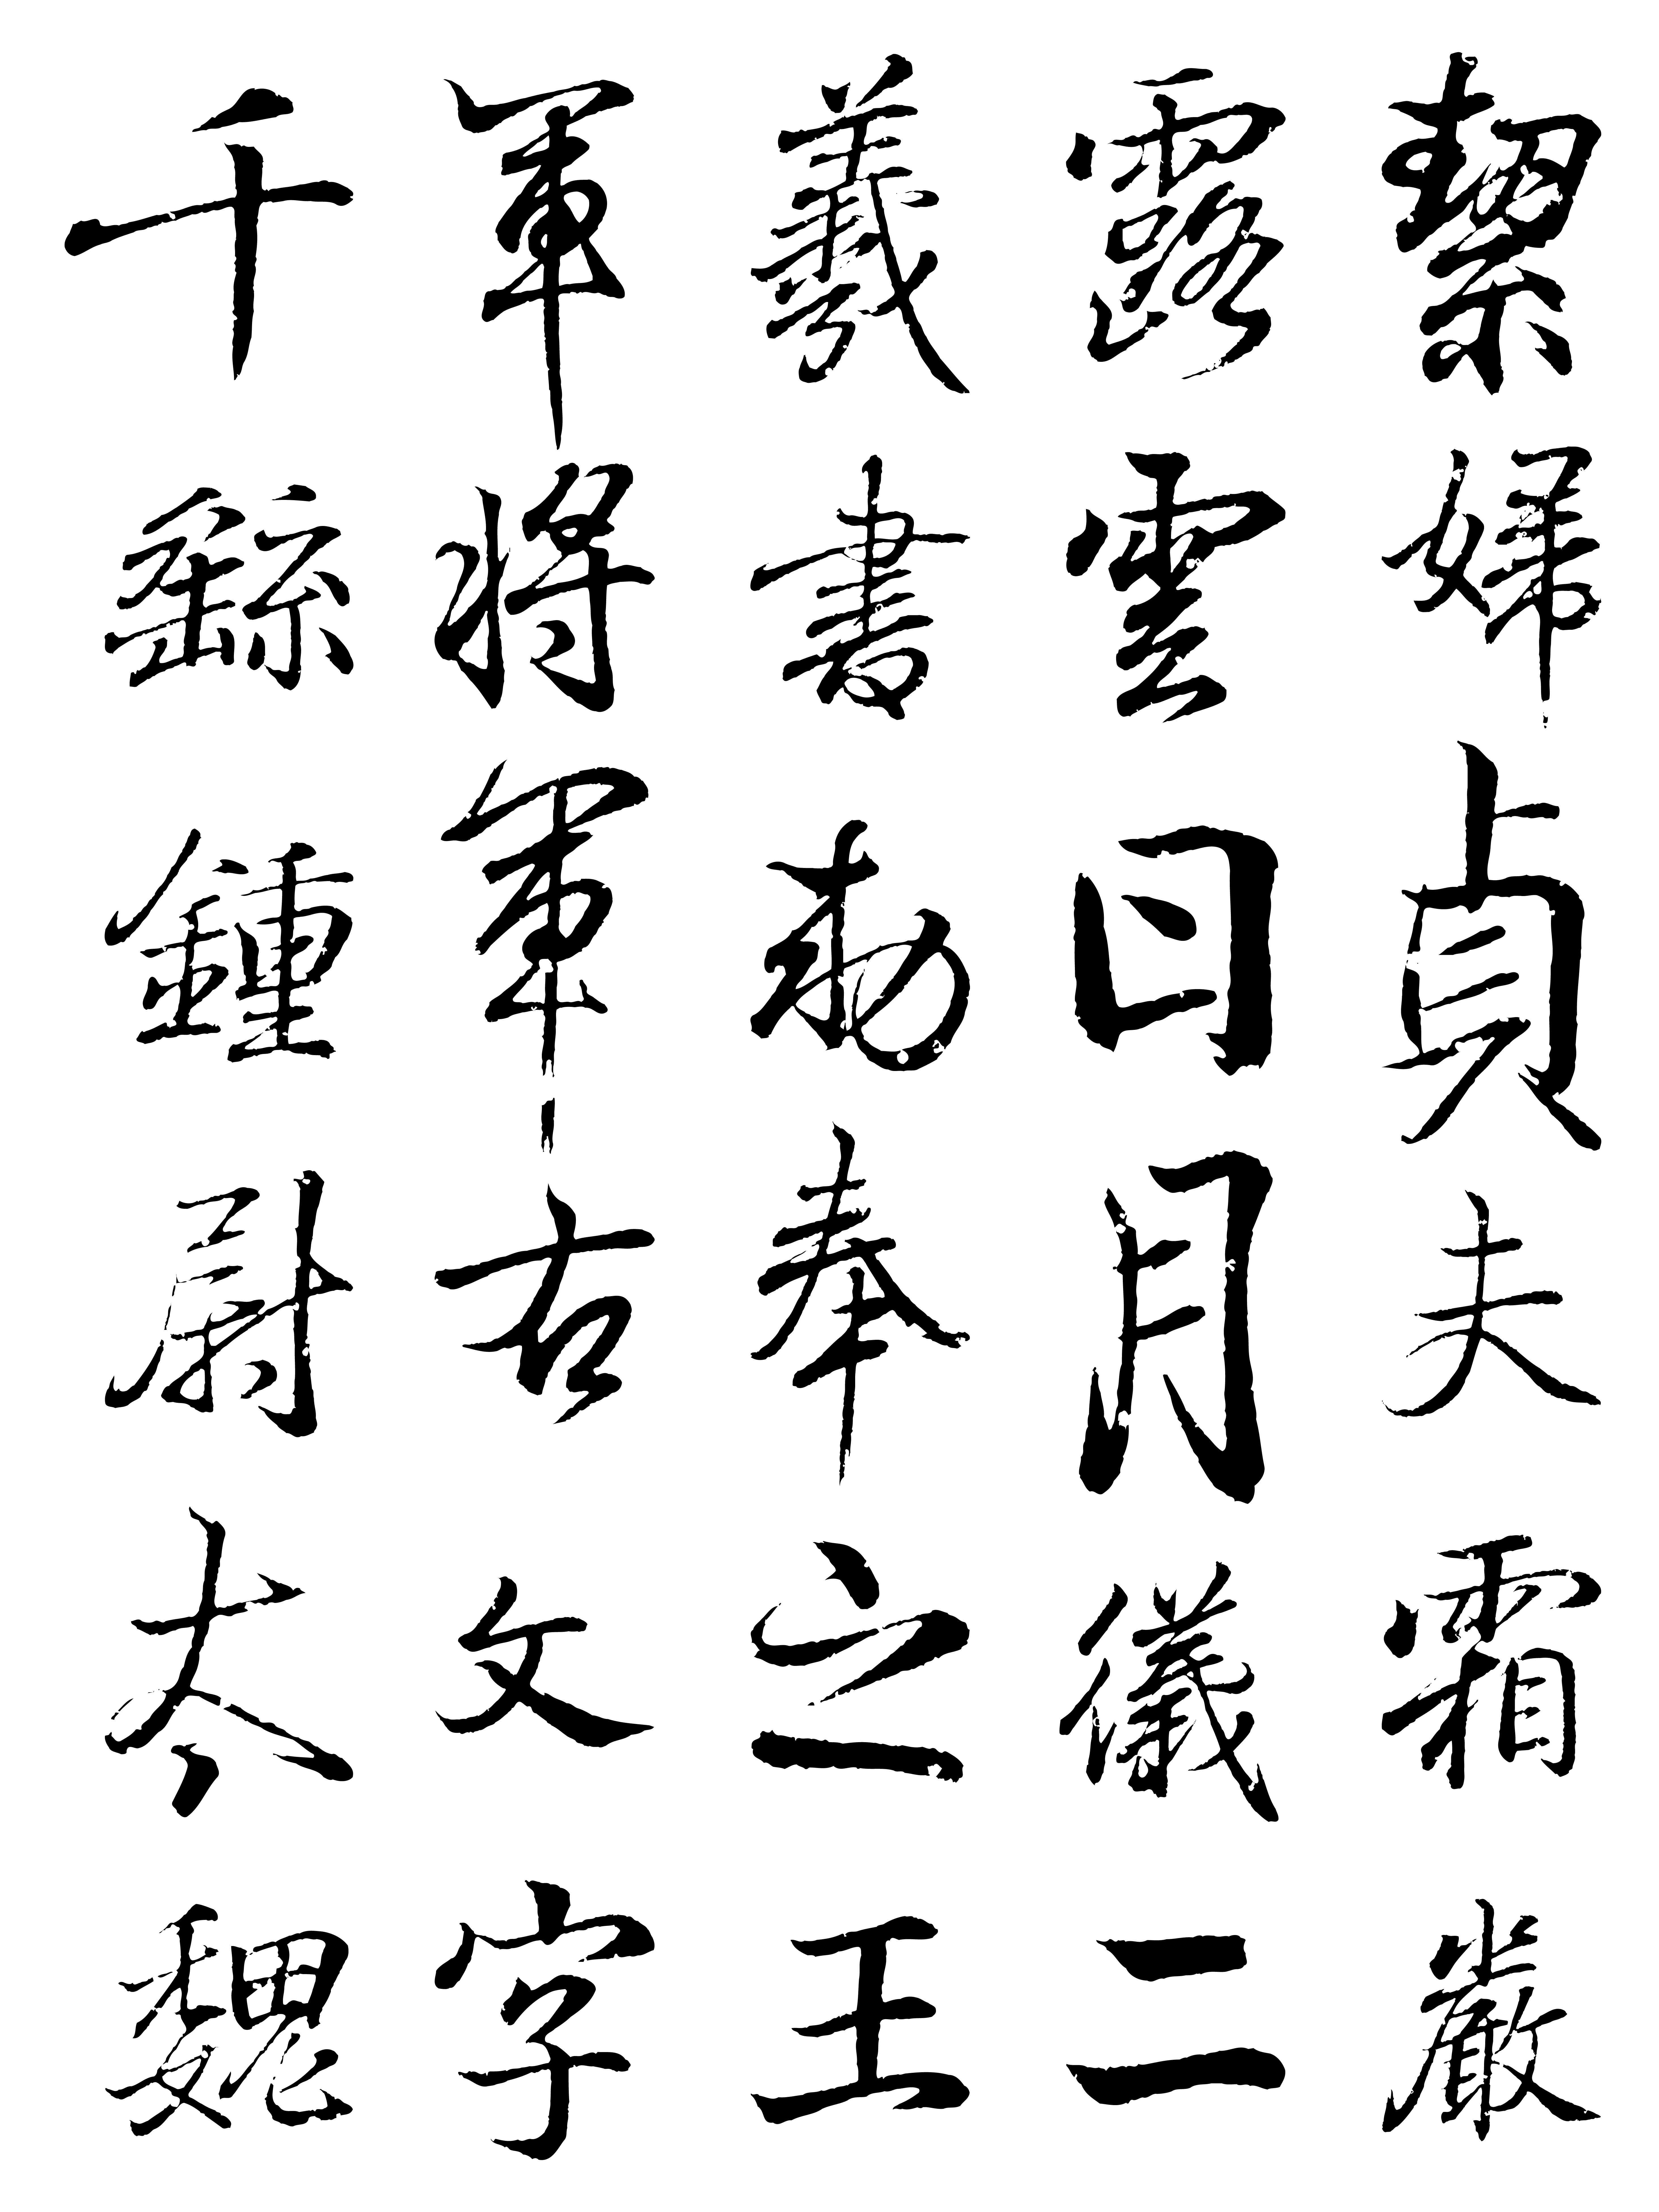 絜婦貞夫霜嚴
露雲日月儀二
義書勅奉之王
軍將軍右文字
千繇鍾尉太魏